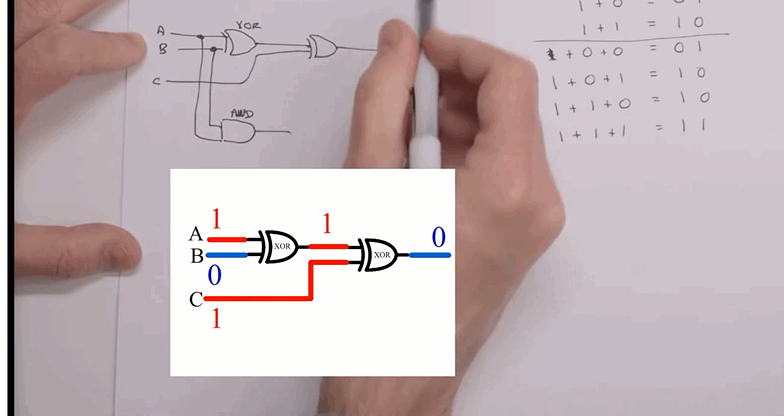 A
B
C
XOR
AND
1 + 0 = 0 1
1 + 1 = 1 0
1 + 0 + 0 = 0 1
1 + 0 + 1 = 1 0
1 + 1 + 0 = 1 0
1 + 1 + 1 = 1 1
1
A
B
0
C
1
XOR
1
XOR
0